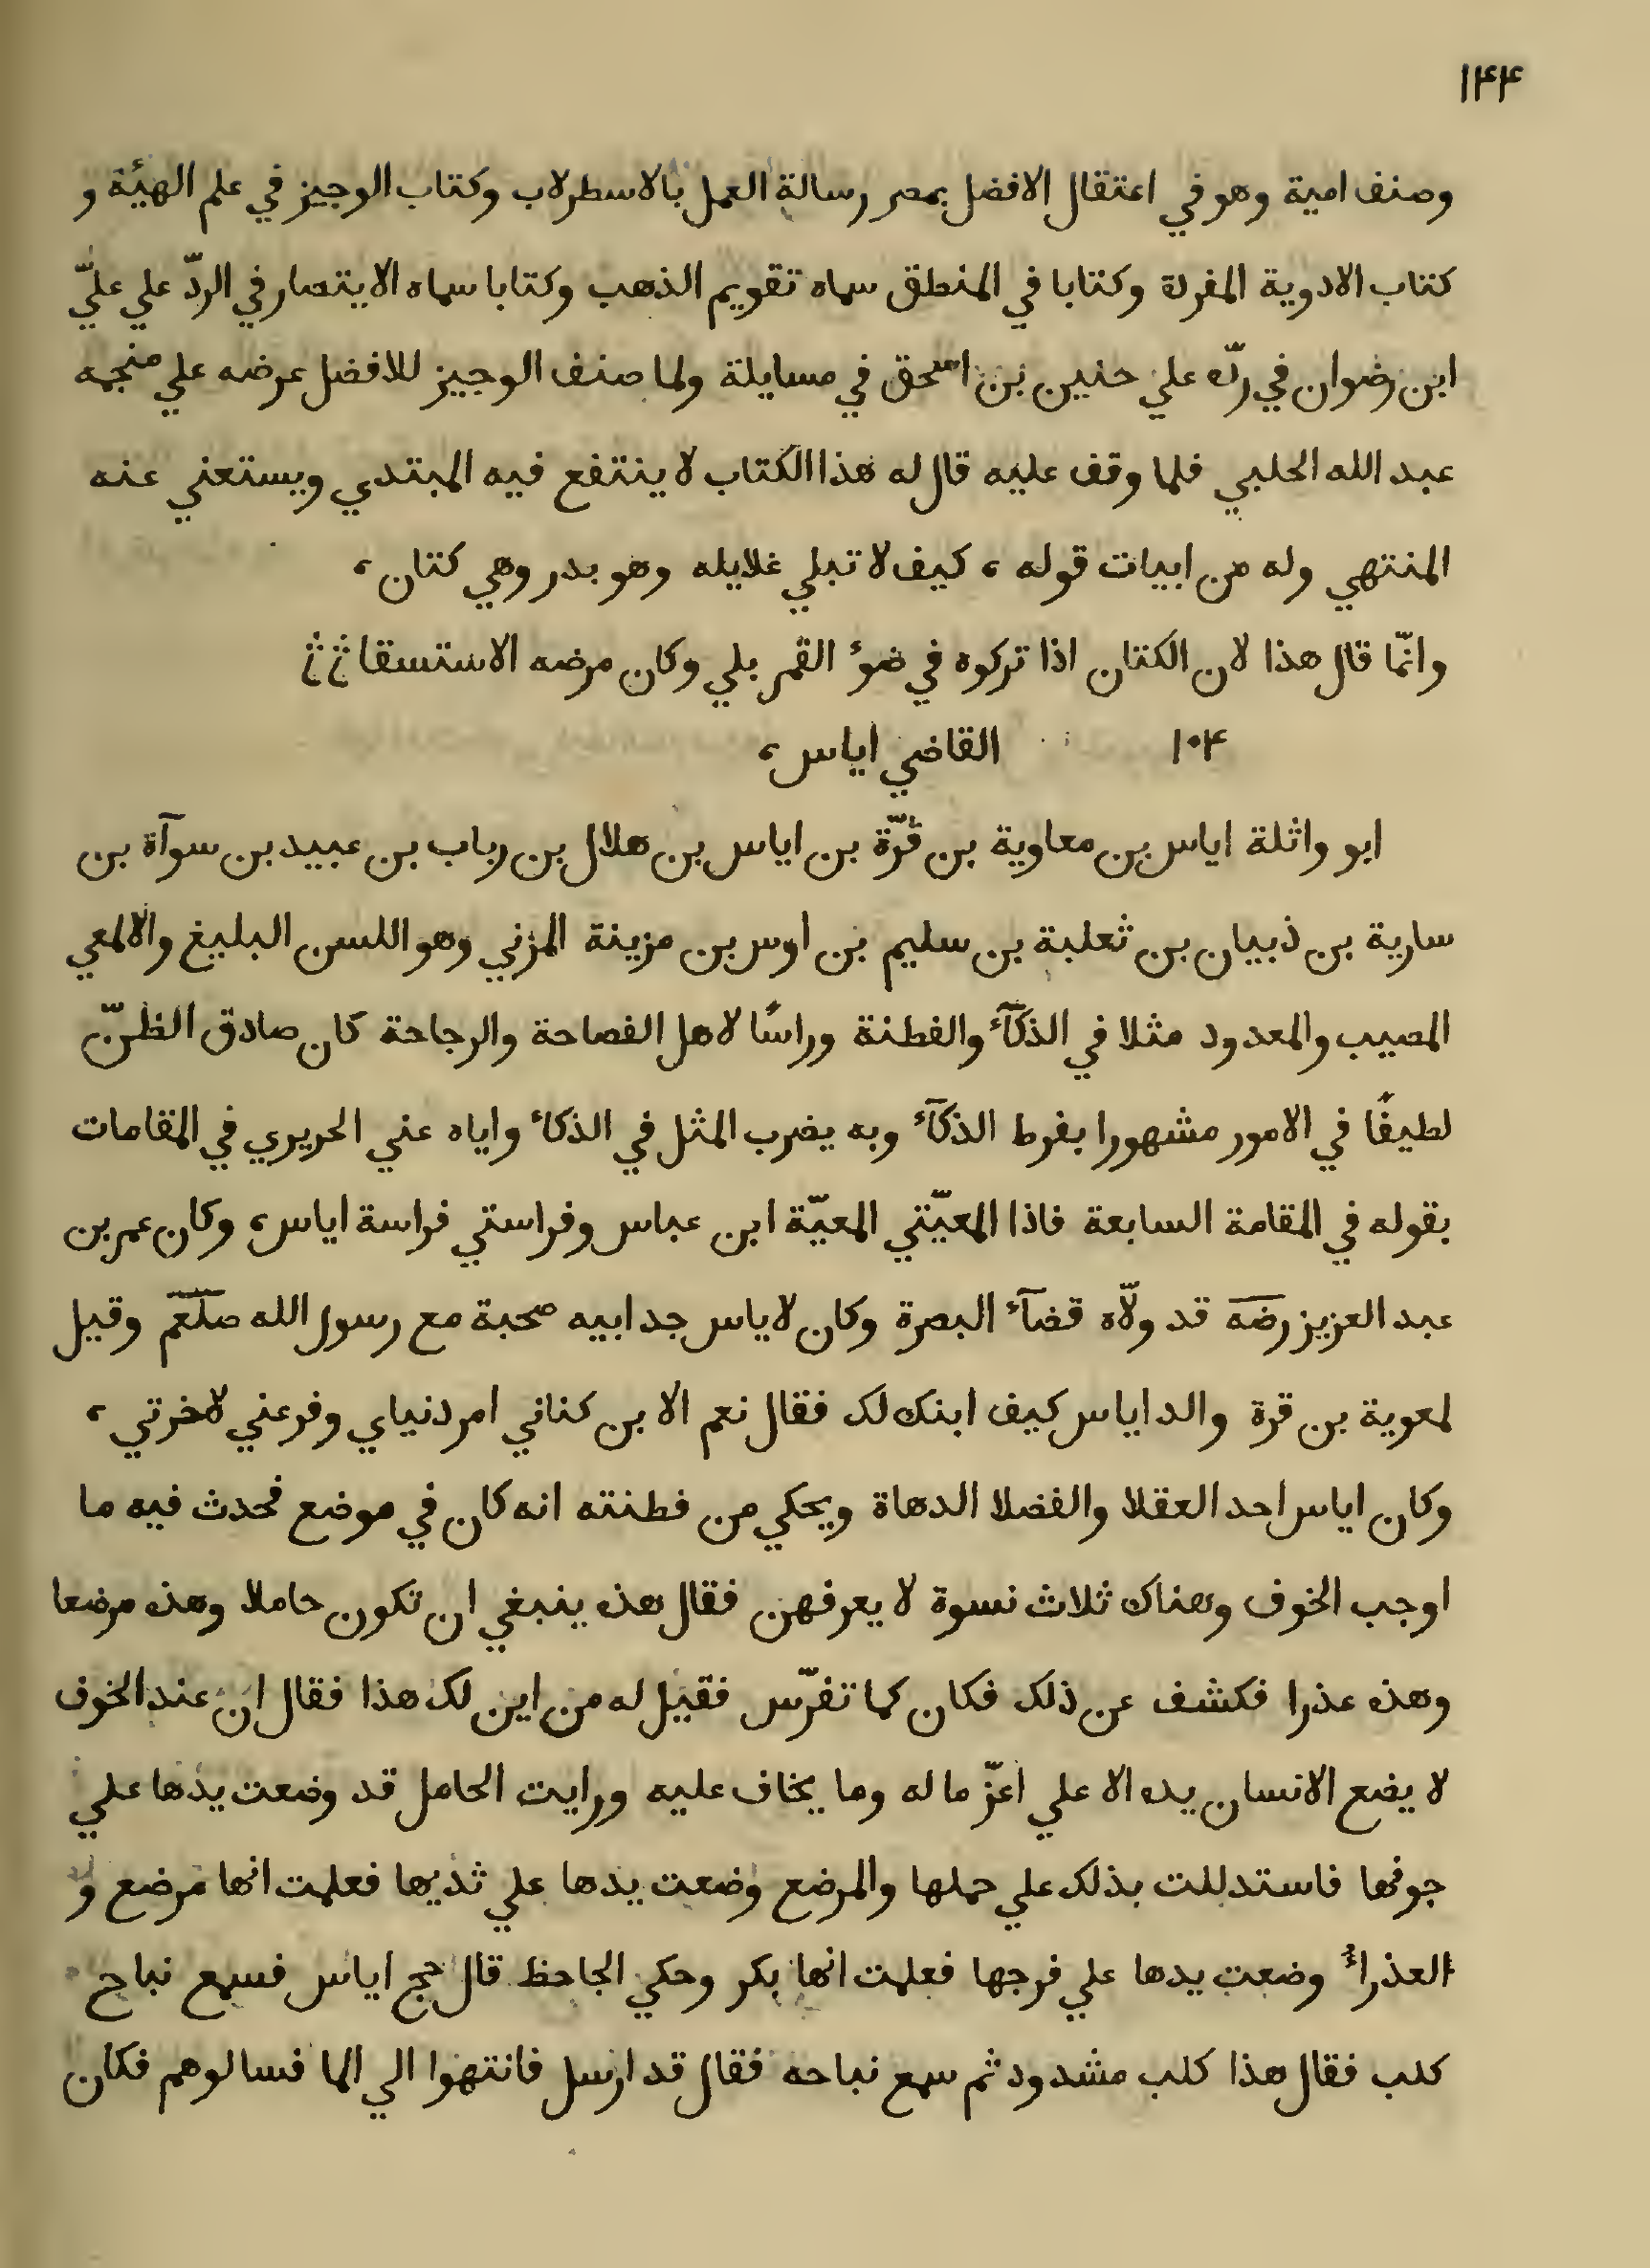 ۱۴۴
وصنف امية وهو في اعتقال الافضل بمصر رسالة العمل بالاسطرلاب وكتاب الوجيز في علم الهيئة و
كتاب الادوية المفردة وكتابا في المنطق سماه تقويم الذهب وكتابا سماه الاينتصار في الردّ علي عليّ
ابن رضوان في ردّه علي حنين بن اسحق في مسايلة ولما صنف الوجيز للافضل عرضه علي منجمه
عبد الله الحلبي فلما وقف عليه قال له هذا الكتاب لا ينتفع فيه المبتدي ويستعني عنه
المنتهي وله من ابيات قوله ، كيف لا تبلي غلايله وهو بدر وهي كتان ،
وانّما قال هذا لان الكتان اذا تركوه في ضوء القمر بلي وكان مرضه الاستسقا
۱۰۴ القاضي اياس ،
ابو واثلة اياس بن معاوية بن قُرّة بن اياس بن هلال بن رباب بن عبيد بن سوآة بن
سارية بن ذبيان بن ثعلبة بن سليم بن اوس بن مزينة المزني وهو اللسن البليغ والالمعي
المصيب والمعدود مثلا في الذكآء والفطنة وراسًا لاهل الفصاحة والرجاحة كان صادق الظنّ
لطيفًا في الامور مشهورا بفرط الذكآء وبه يضرب المثل في الذكاء واياه عني الحريري في المقامات
بقوله في المقامة السابعة فاذا المعيّتي المعيّة ابن عباس وفراستي فراسة اياس ، وكان عمر بن
عبد العزيز رضَه قد ولّاه قضآء البصرة وكان لاياس جد ابيه صحبة مع رسول الله صلعَم وقيل
لمعوية بن قرة والد اياس كيف ابنك لك فقال نعم الابن كفاني امر دنياي وفرغني لآخرتي ،
وكان اياس احد العقلا والفضلا الدهاة ويحكي من فطنته انه كان في موضع فحدث فيه ما
اوجب الخوف وهناك ثلاث نسوة لا يعرفهن فقال هذه ينبغي ان تكون حاملا وهذه مرضعا
وهذه عذرا فكشف عن ذلك فكان كما تفرّس فقيل له من اين لك هذا فقال ان عند الخوف
لا يضع الانسان يده الا علي اعزّ ما له وما يخاف عليه ورايت الحامل قد وضعت يدها علي
جوفها فاستدللت بذلك علي حملها والمرضع وضعت يدها علي ثديها فعلمت انها مرضع و
العذراء وضعت يدها علي فرجها فعلمت انها بكر وحكي الجاحظ قال حج اياس فسمع نباح
كلب فقال هذا كلب مشدود ثم سمع نباحه فقال قد ارسل فانتهوا الي الما فسالوهم فكان